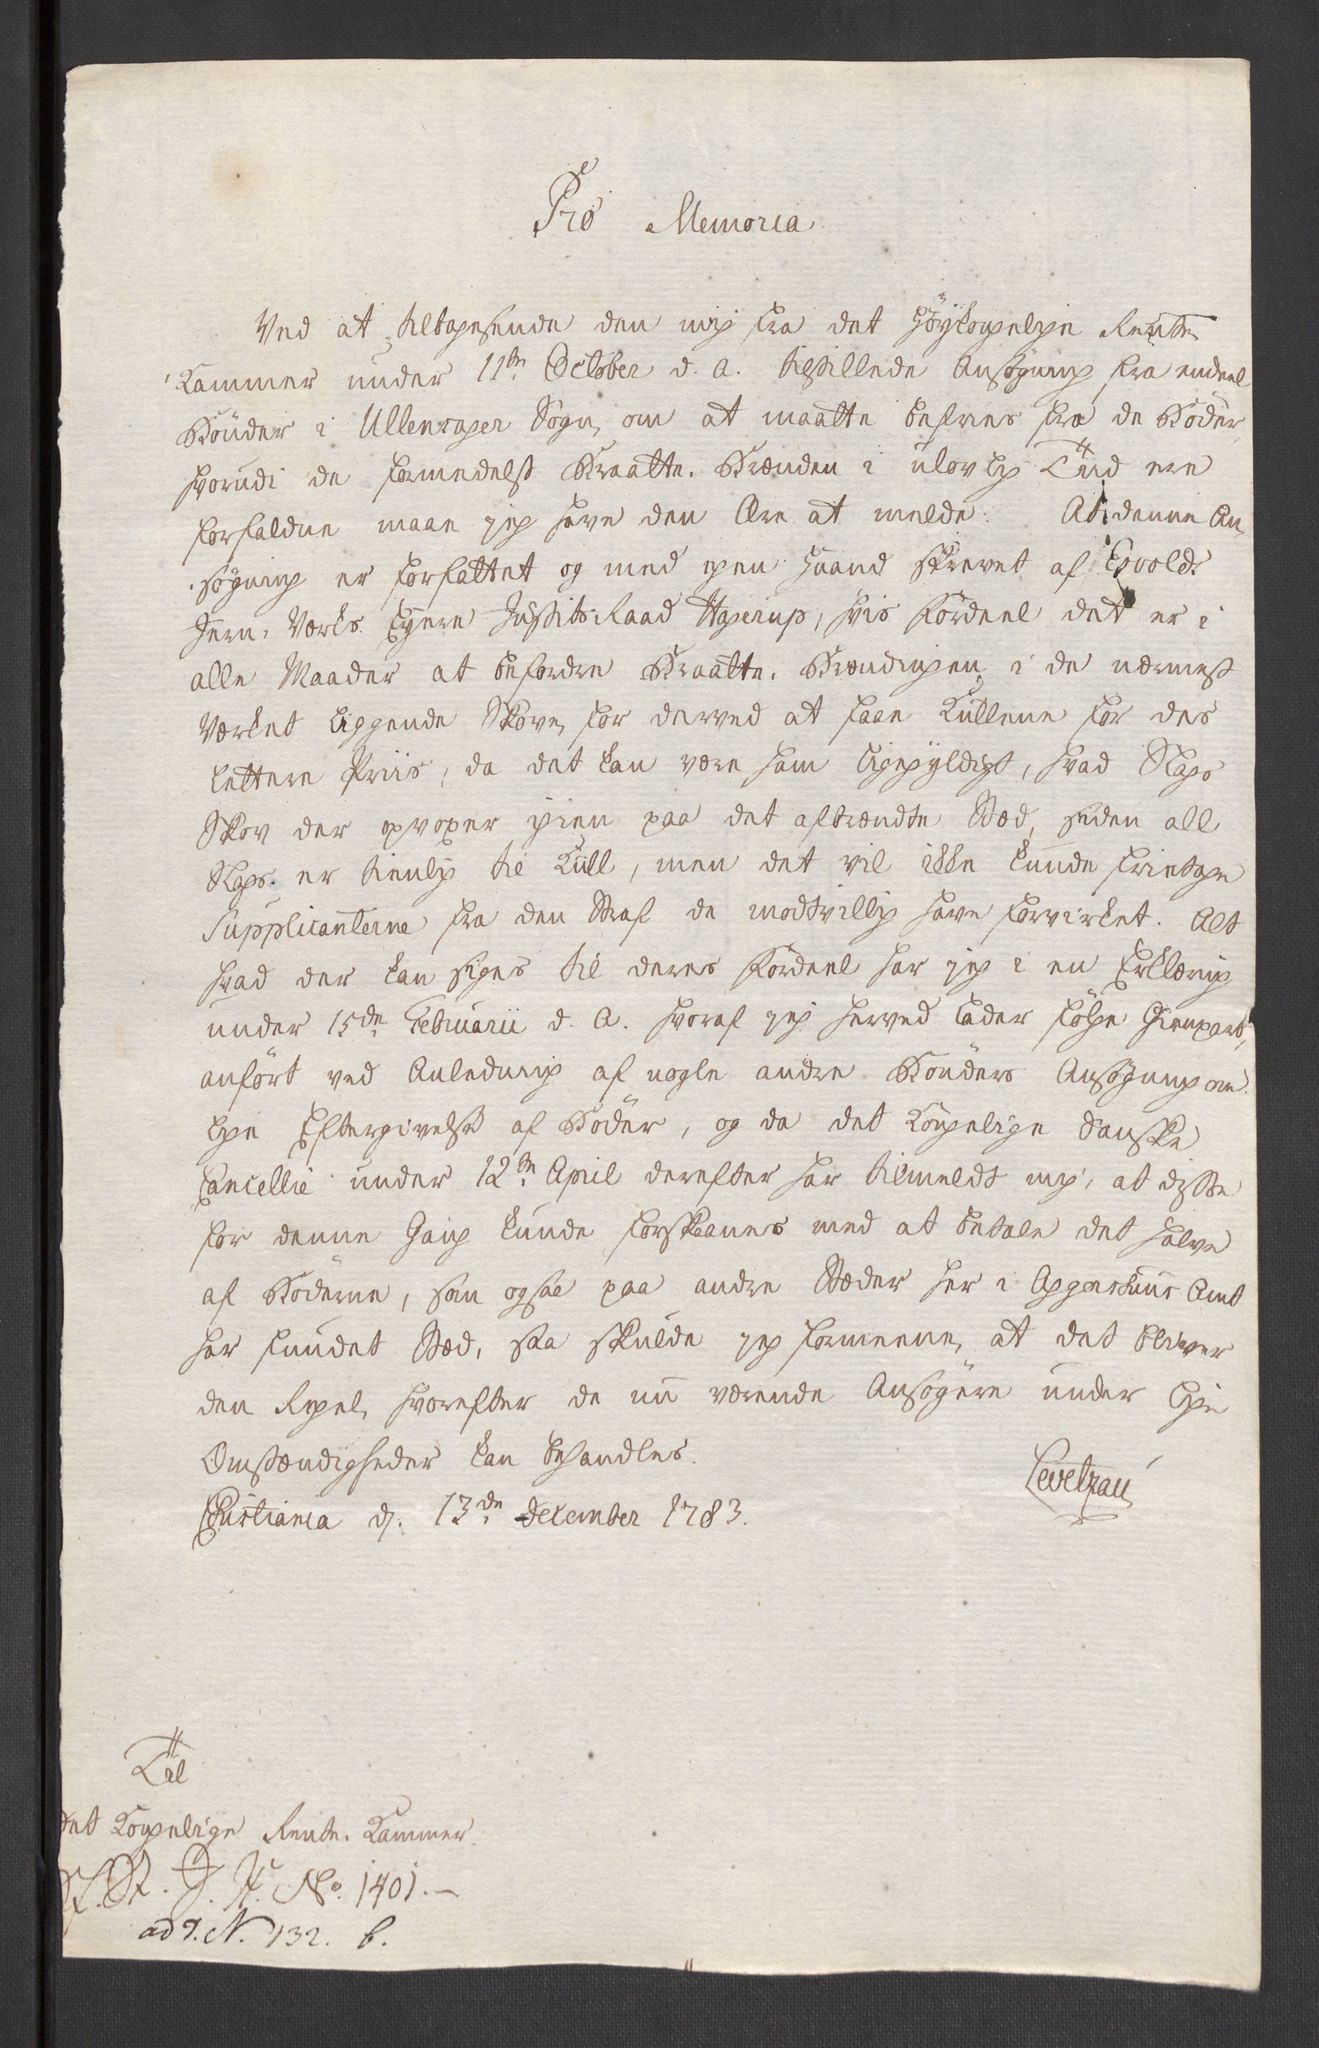 Pro Memoria
Ved at tilbagesende den mig fra det Höykongelige Rente
Kammer under 11te October d. A. tilstillede Ansögning fra endeel
Bönder i Ullensager Sogn, om at maatte befries fra de Böder,
hvorudi de formedelst Braatte-Brænden i ulovlig Tiid ere
forfaldne maae jeg have den Ære at melde: At denne An-
sögning er forfattet og med egen Haand skrevet af Eidsvolds
Jern-Værks Eyere Justits-Raad Hagerup, hvis Fordeel det er i
alle Maader at befordre Braatte-Brændingen i de nærmest
Værket liggende Skove, for derved at faae Kullene for des
lettere Priis, da det kan være ham ligegyldigt, hvad Slags
Skov der opvoxer igien paa det afbrændte Stæd, siden all
Slags er tienlig til Kull, men det vil ikke kunde frietage
Supplicanterne fra den Straf de modtvillig have forvirket. Alt
hvad der kan siges til deres Fordeel har jeg i en Erklæring
under 15de Februarii d. A. hvoraf jeg herved lader fölge Gienpart,
anfört ved Anledning af nogle andre Bönders Ansögning om
lige Eftergivelse af Böder, og da det Kongelige Danske
Cancellie under 12te April derefter har tilmeldt mig, at disse
for denne Gang kunde forskaanes med at betale det halve
af Böderne, som ogsaa paa andre Stæder her i Aggershuus Amt
har fundet Stæd, saa skulde jeg formeene, at det bliver
den Regel, hvorefter de nu værende Ansögere under lige
Omstændigheder kan behandles.
Christiania d. 13de December 1783.
Levetzau
Til
det Kongelige Rente-Kammer.
No. 1401.
ad J. N. 132. b.